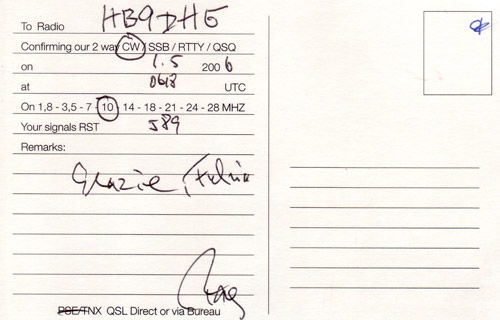 To Radio HB9DHG
Confirming our 2 way CW / SSB / RTTY / QSQ
on 1.5 2006
at 0618 UTC
On 1,8 - 3,5 - 7 - 10 - 14 - 18 - 21 - 24 - 28 MHZ
Your signals RST 589
Remarks:
Grazie, Fulvio
PSE/TNX QSL Direct or via Bureau